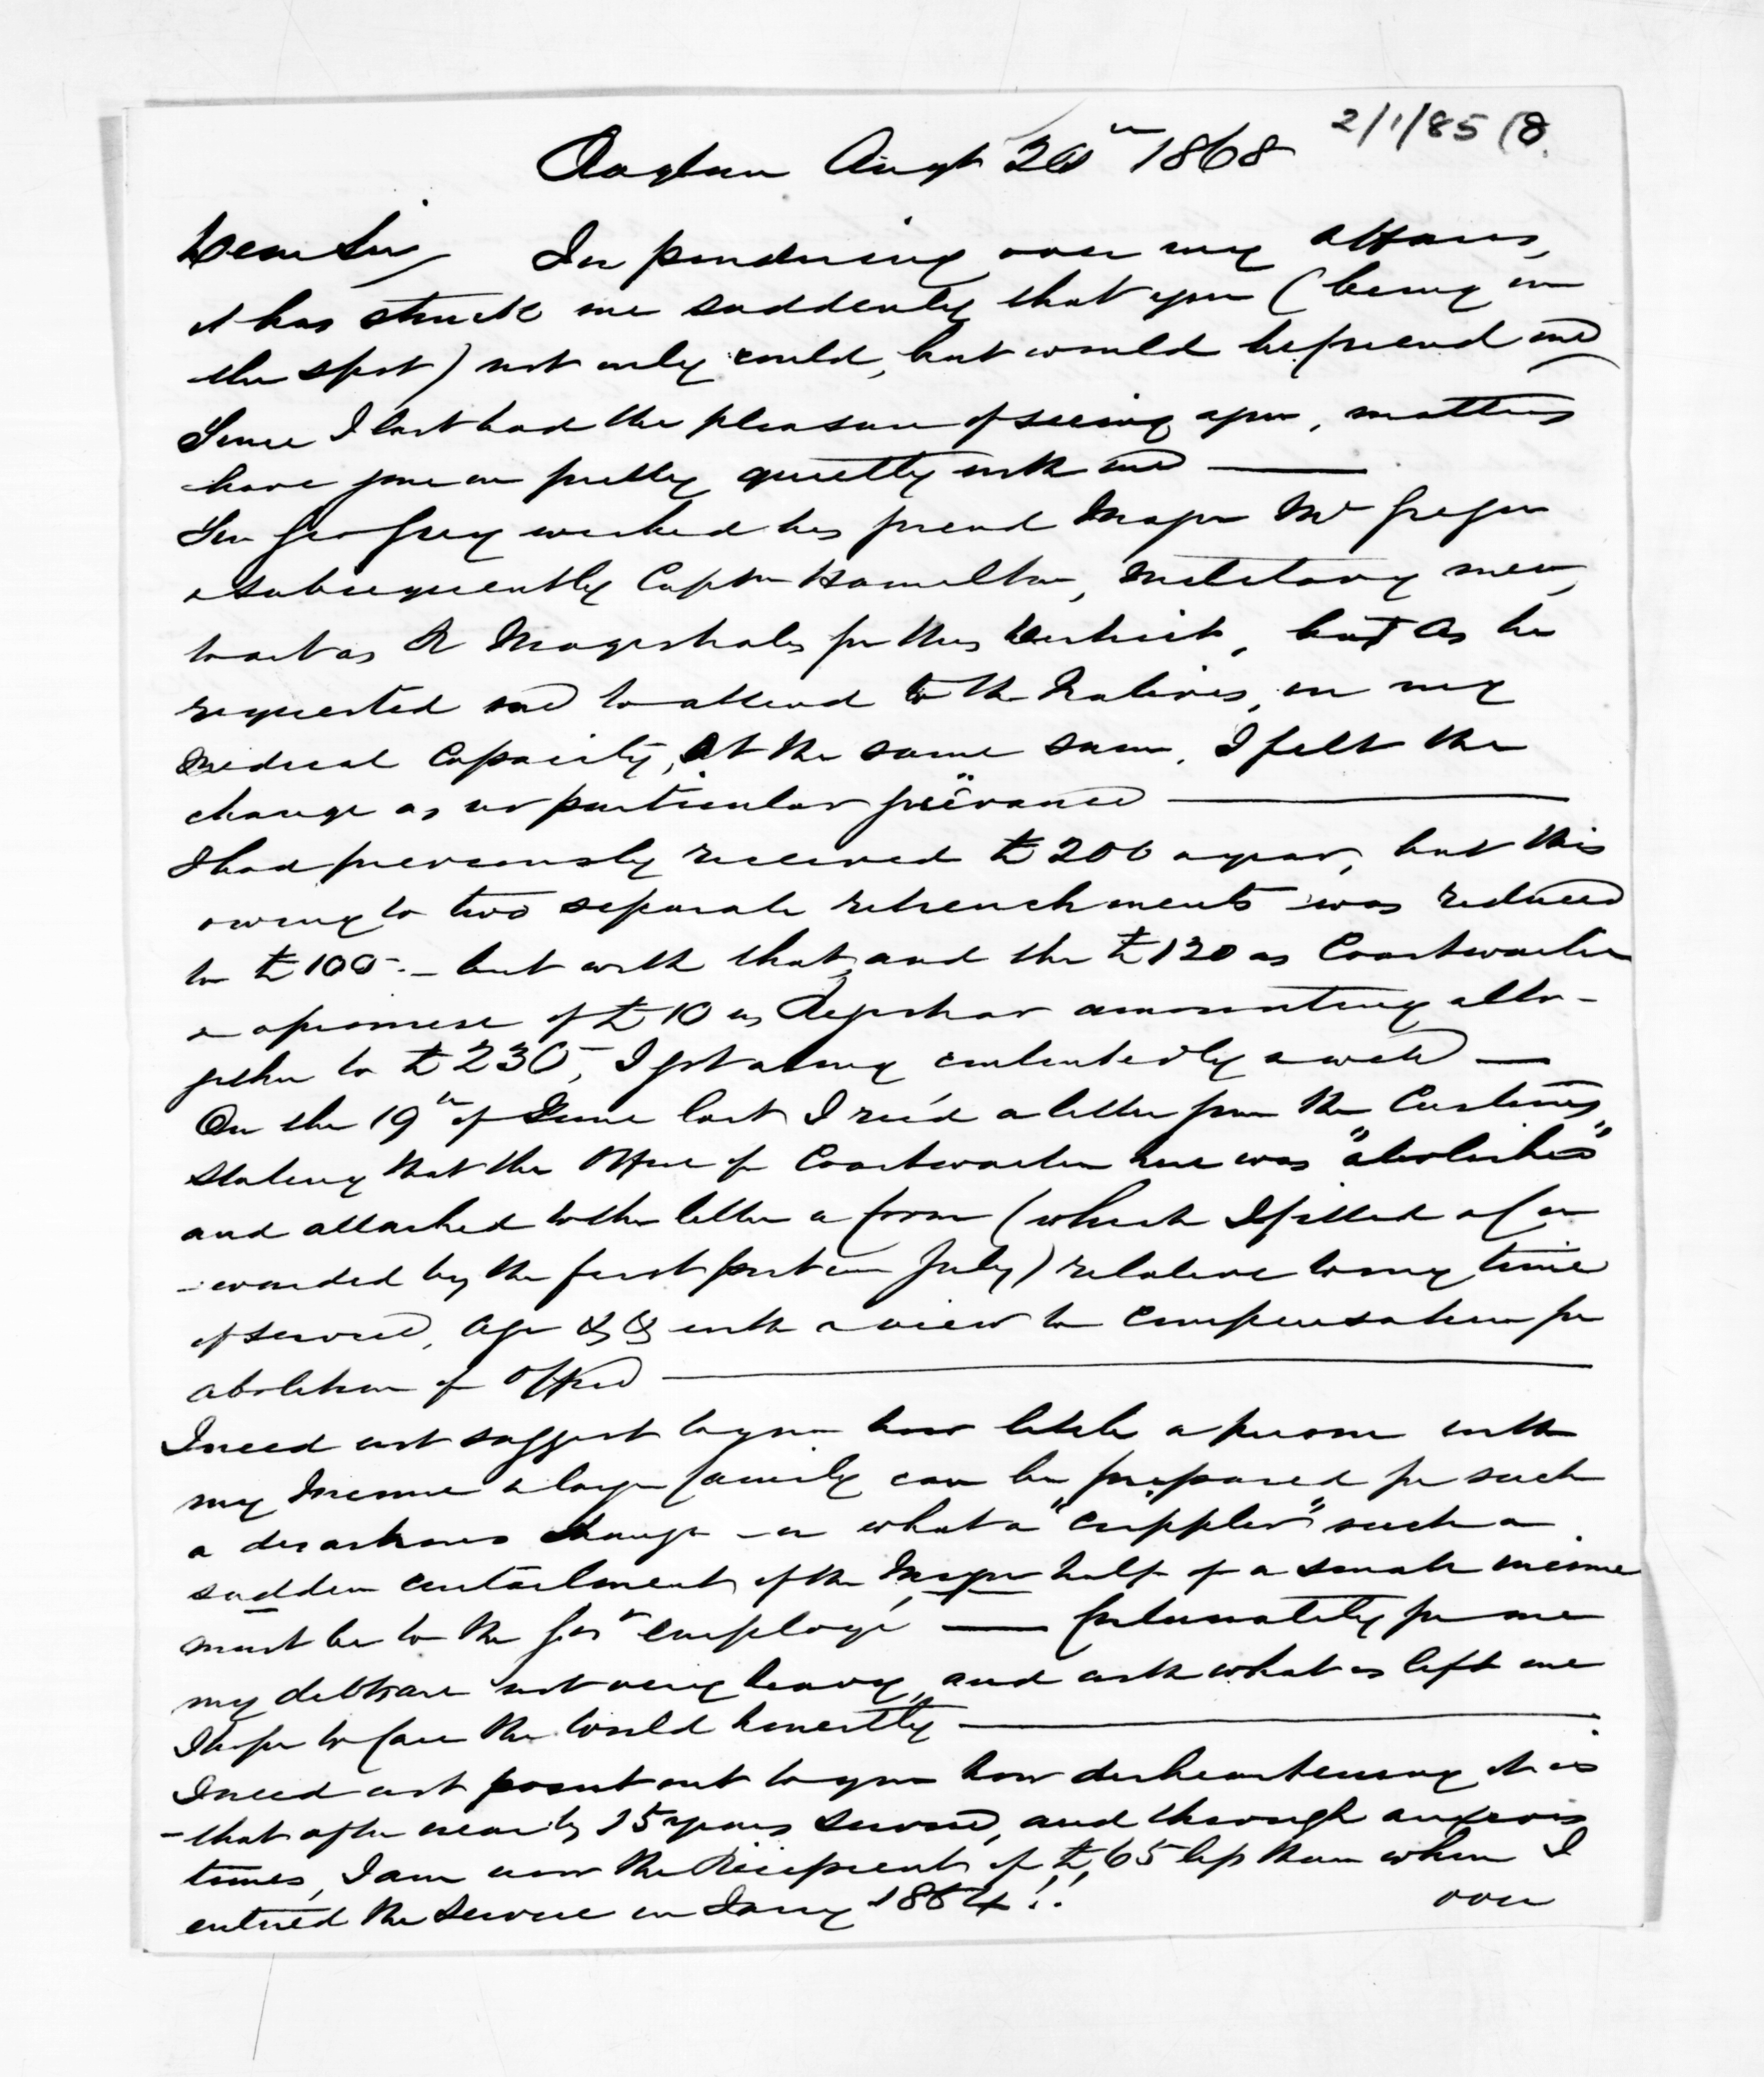 2/1/85 (8.
Raglan Augt 20th 1868
Dear Sir, In pondering over my affairs,
it has struck me suddenly that you (being on
the spot) not only could, but would befriend me
Since I last had the pleasure of seeing you, matters
have gone on pretty quietly with me —
Sir Geo Grey wished his friend Major McGregor
& subsequently Captn Hamilton, Military men,
to act as R Magistrates for this District, but as he
requested me to attend to the Natives, in my
medical Capacity, at the same sum, I felt the
change as no particular grievance —
I had previously received £200 a year, but this
owing to two separate retrenchments was reduced
to £100 - but with that, and the £120 as Coastwaiter
& a promise of £10 as Registrar amounting alto-
gether to £230, I got along contentedly & well —
On the 19th of June last I rec'd a letter from the Customs,
stating that the Office of Coastwaiter here was "abolished"
and attached to the letter a form (which I filled & for
-warded by the first post in July) relative to my time
of service, age &c &c with a view to Compensation for
abolition of Office —
I need not suggest to you how little a person with
my Income & large family can be prepared for such
a disastrous change - or what a "crippler" such a
sudden curtailment of the Major half of a small income
must be to the Govt employé — fortunately for me
my debts are not very heavy, and with what is left me
I hope to face the World honestly —
I need not point out to you how disheartening it is
-that after nearly 15 years Service, and through anxious
times, I am now the Recipient of £65 less than when I
entered the Service in Jany 1854!!
over